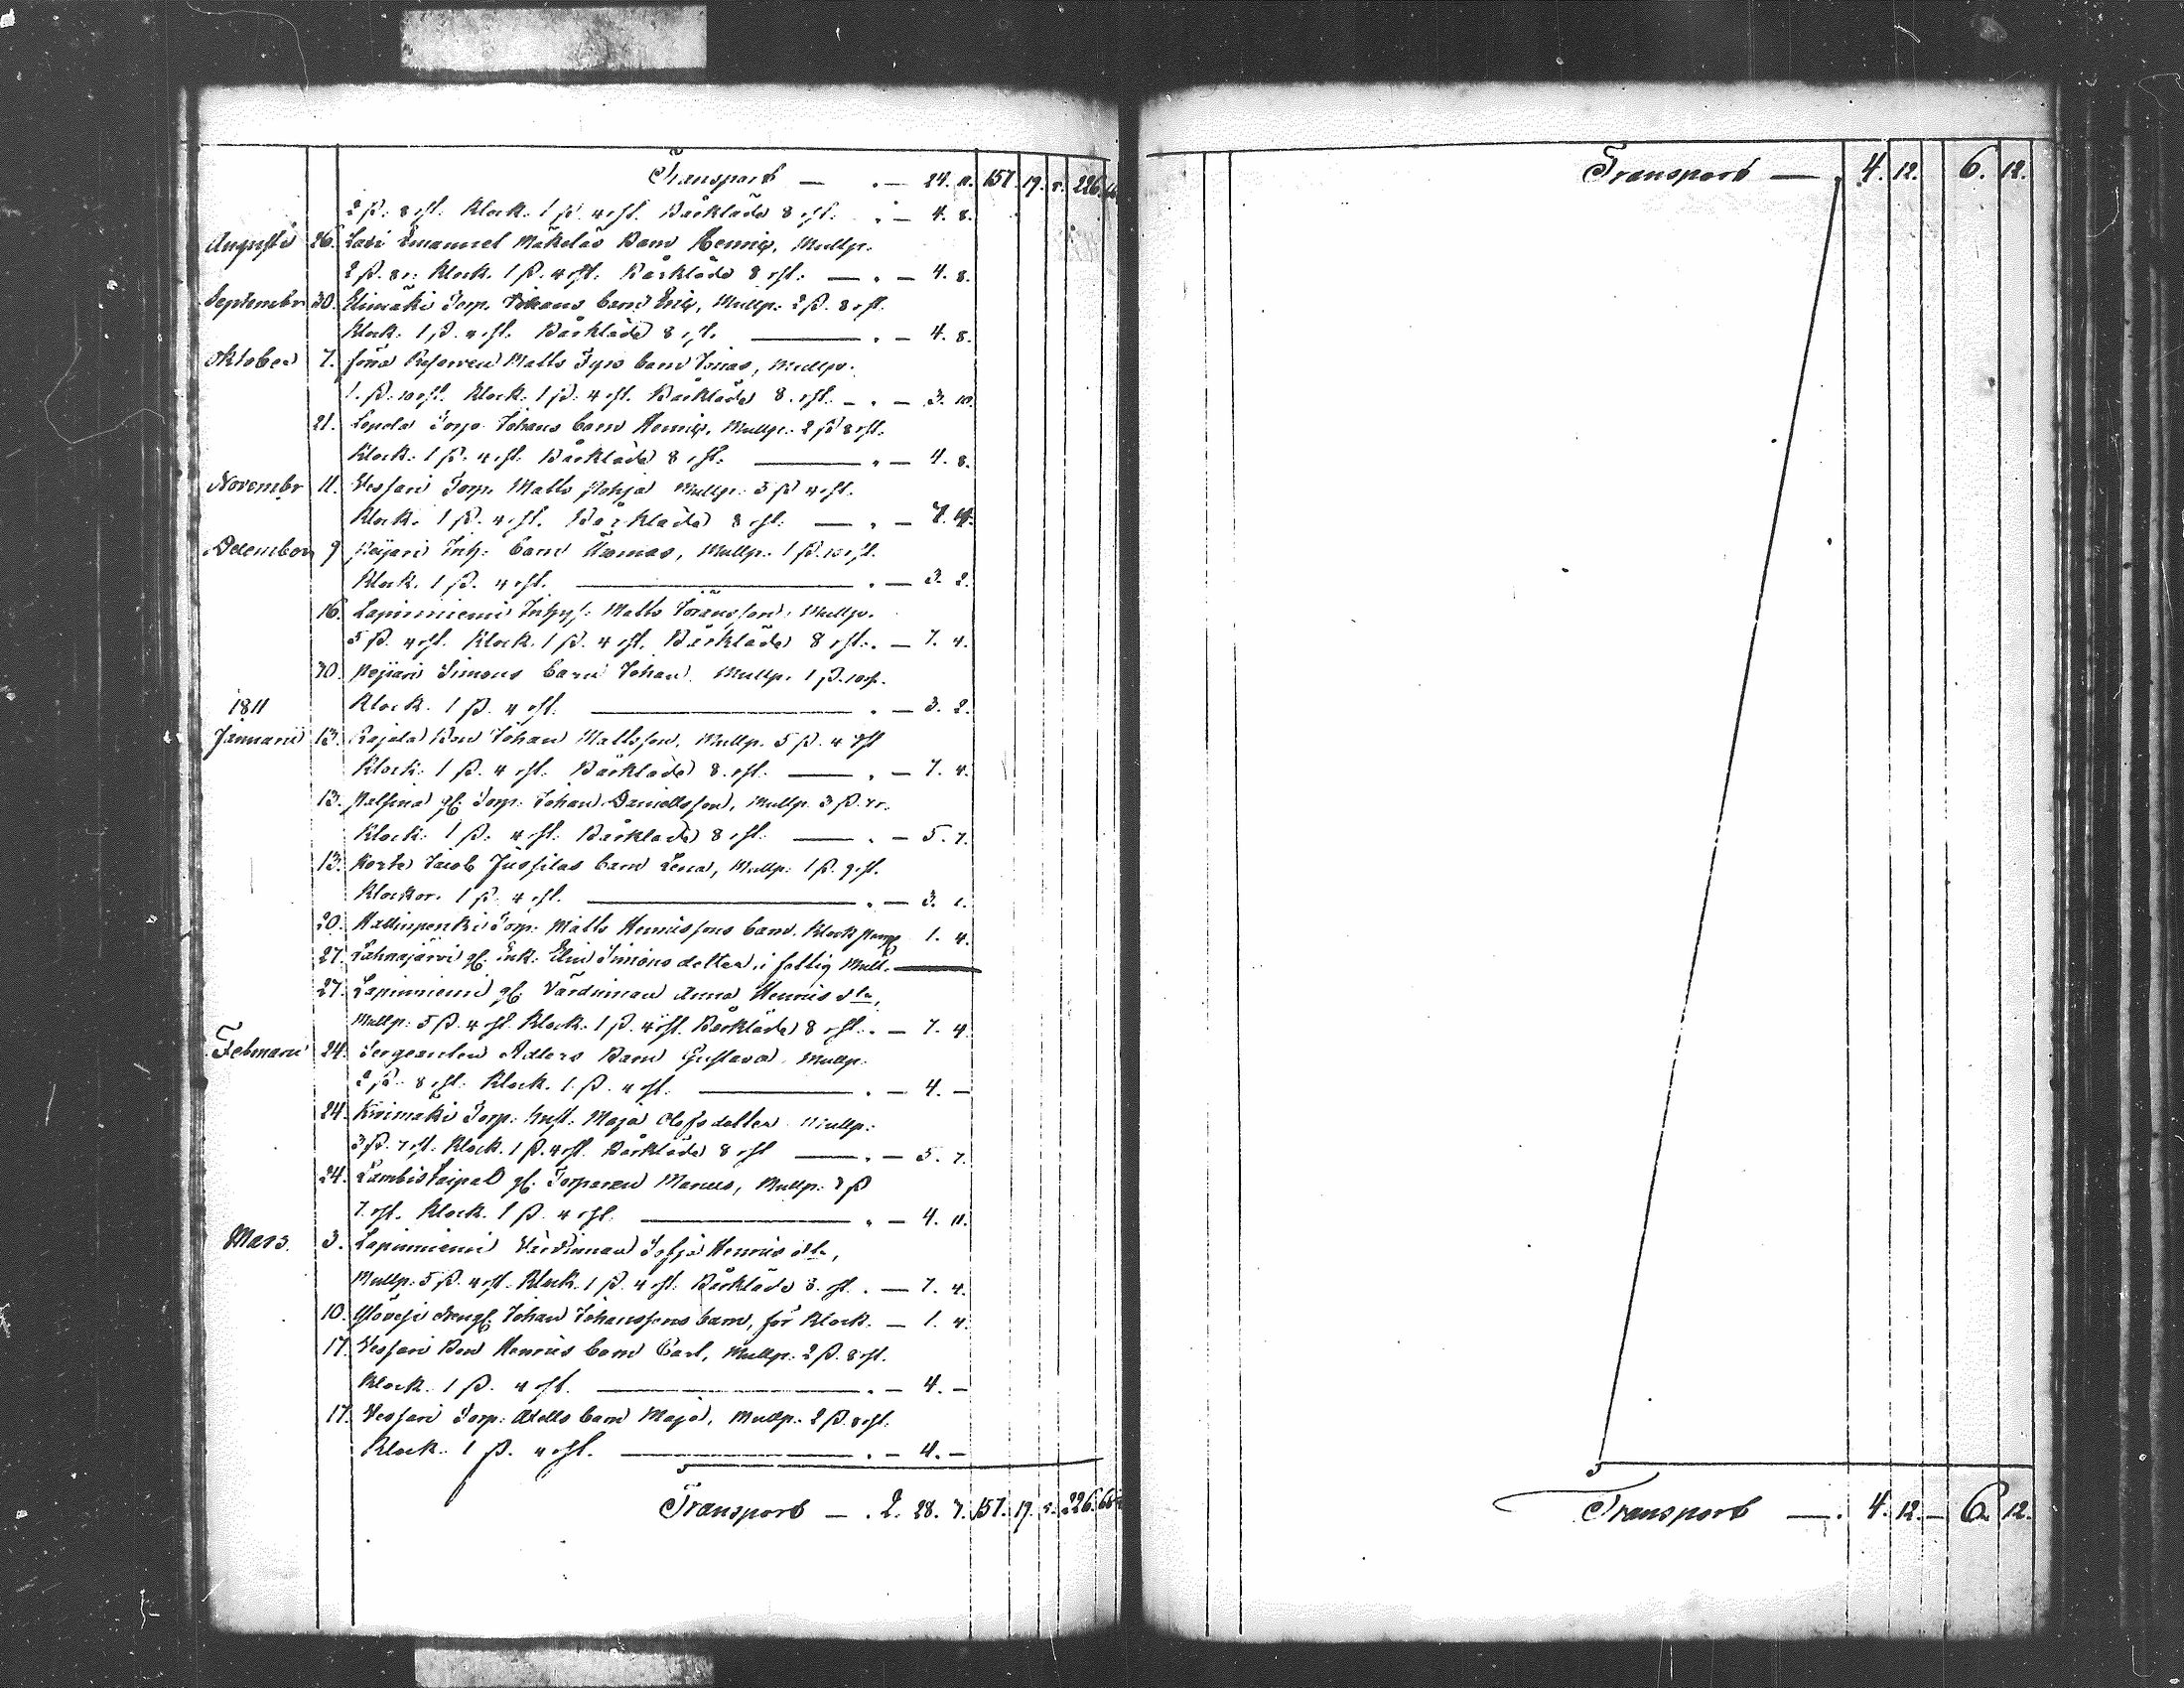 Transport — . — 24. 11. 157. 19. 5. 226.
2 ß. 8 rst. Klock. 1 ß. 4 rst. Bårkläde 8 rst. . — 4. 8.
Augusti 26. Lari Emanuel Mäkeläs Barn Henric, Mullp.
2 ß. 8 r. Klock. 1 ß. 4 rst. Bårkläde 8 rst. — . — 4. 8.
Septembr 30. Torp. Johans barn Eric, Mullp. 2 ß. 8 rst.
Klock. 1 ß. 4 rst. Bårkläde 8 rst. — . — 4. 8.
Oktober 7. Matts barn Jonas, Mullp.
1 ß. 10 rst. Klock. 1 ß. 4 rst. Bårkläde 8 rst. — . — 3. 10.
21. Torp. Johans barn Henric, Mullp. 2 ß 8 rst.
Klock. 1 ß. 4 rst. Bårkläde 8 rst. — . — 4. 8.
Novembr 11. Vessari Torp. Matts Pohja Mullp. 5 ß 4 rst.
Klock. 1 ß. 4 rst. Bårkläde 8 rst. — . — 7. 4.
December 9 Peijari Inh. barn Thomas, Mullp. 1 ß. 10 rst.
Klock. 1 ß. 4 rst. — . — 3. 2.
16. Lapinniemi Matts Mullp.
5 ß. 4 rst. Klock. 1 ß. 4 rst. Bårkläde 8 rst. . — 7. 4.
30. Peijari Simons barn Johan, Mullp. 1 ß. 10 r.
1811 Klock. 1 ß. 4 rst. — . — 3. 2.
Januarii 13. Rajala Bon Johan Mattsson, Mullp. 5 ß. 4 rst
Klock. 1 ß. 4 rst. Bårkläde 8 rst. — . — 7. 4.
13. gl. Torp. Johan Danielsson, Mullp. 3 ß. 7 r.
Klock. 1 ß. 4 rst. Bårkläde 8 rst. — . — 5. 7.
13. Jacob Jussilas barn Lena, Mullp. 1 ß. 9 rst.
Klockor. 1 ß. 4 rst. — . — 3. 1.
20. Torp. Matts Henrikssons barn. Klock 1. 4.
27. Lahnajärvi gl. Enk. Elin Simons dotter, i fattig Mull. —
27. Lapinniemi gl. Värdinnan Anna Henrics dtr,
Mullp. 5 ß. 4 rst. Klock. 1 ß. 4 rst. Bårkläde 8 rst. . — 7. 4.
Februarii 24. Sergeanten Adlers Barn Gustava, Mullp.
2 ß. 8 rst. Klock. 1 ß. 4 rst. — . — 4. —
24. Torp. Hust. Maja Olofsdotter Mullp.
3 ß. 7 rst. Klock. 1 ß. 4 rst. Bårkläde 8 rst — . — 5. 7.
24. gl. Torparen Marcus, Mullp. 3 ß
7 rst. Klock. 1 ß. 4 rst. — . — 4. 11.
Mars. 3. Lapinniemi Värdinnan Sofja Henrics dtr,
Mullp. 5 ß. 4 rst. Klock. 1 ß. 4 rst. Bårkläde 8 rst. . — 7. 4.
10. Johan Johanssons barn, för Klock. — 1. 4.
17. Vessari Bon Henrics barn Carl, Mullp. 2 ß. 8 rst.
Klock. 1 ß. 4 rst. — . — 4. —
17. Vessari Torp. Axells barn Maja, Mullp. 2 ß. 8 rst.
Klock. 1 ß. 4 rst. — . — 4. —
Transport — . 2. 28. 7. 157. 19. 5. 226.
Transport — . 4. 12. 6. 12.
Transport — . 4. 12. — 6. 12.